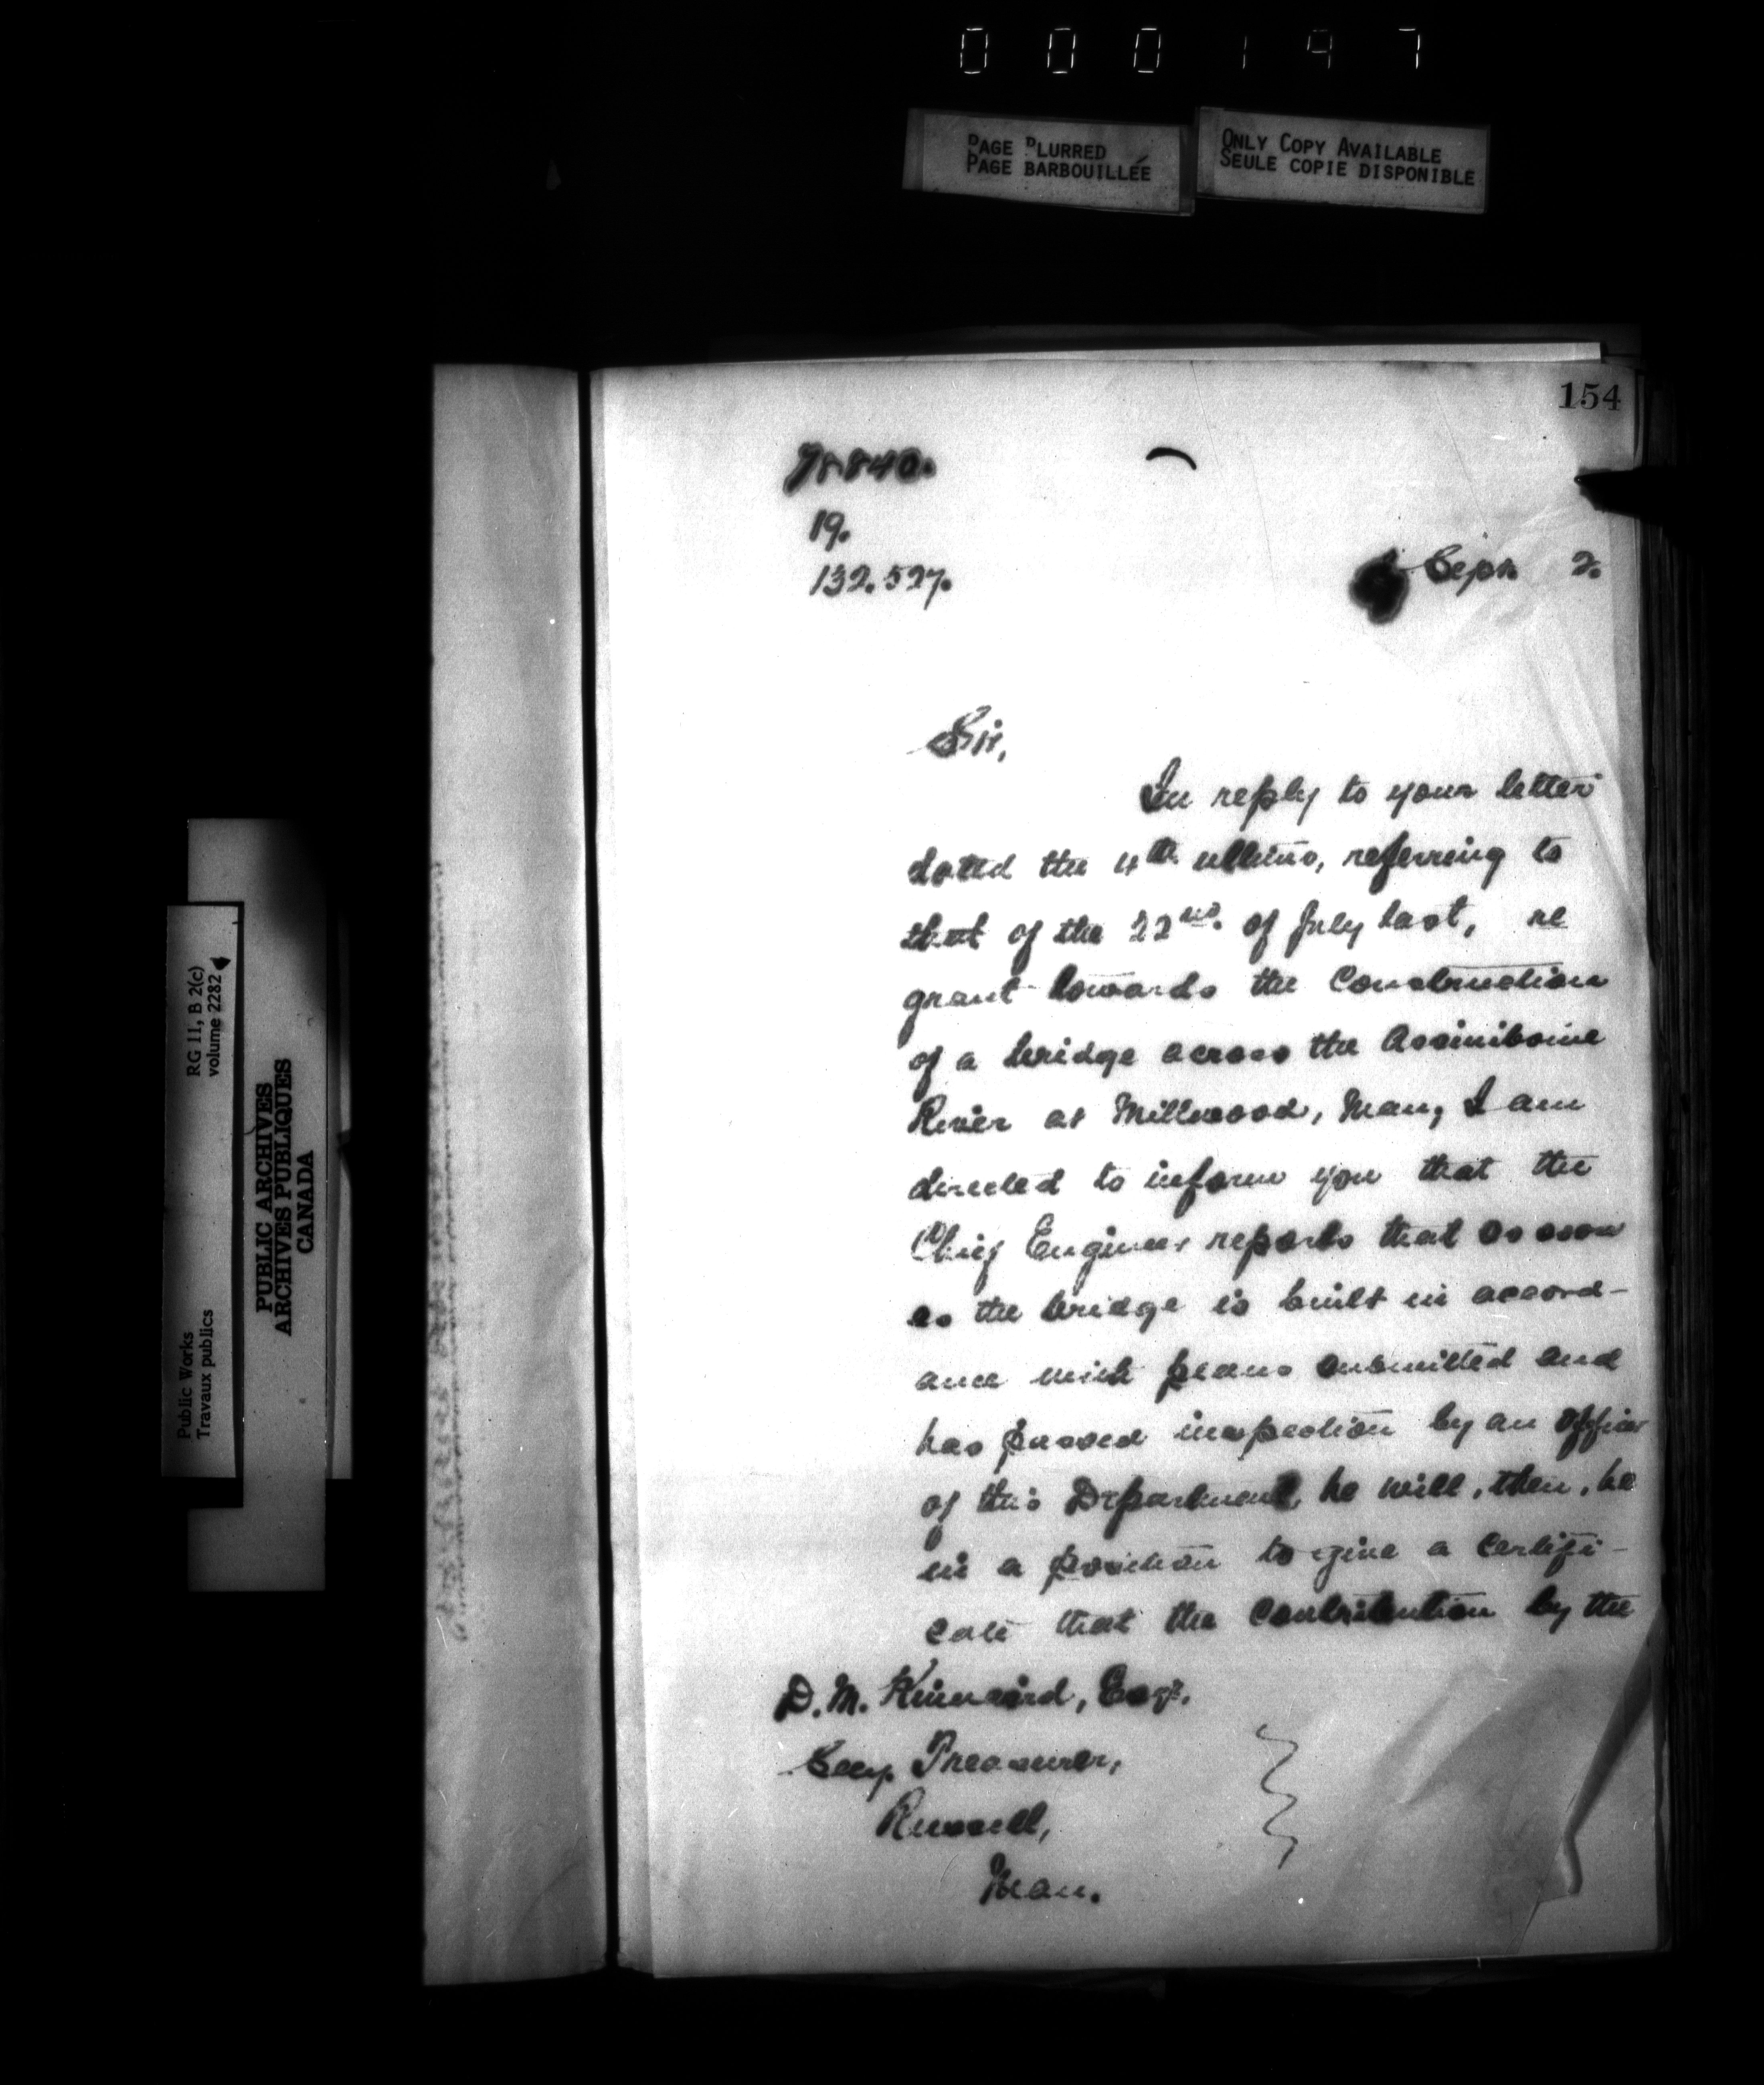 000197
PAGE BLURRED
PAGE BARBOUILLÉE
ONLY COPY AVAILABLE
SEULE COPIE DISPONIBLE
RG 11, B 2(c)
volume 2282
Public Works
Travaux publics
PUBLIC ARCHIVES
ARCHIVES PUBLIQUES
CANADA
154
19.
132.527.
Sept. 2.
Sir,
In reply to your letter
dated the 4th ultimo, referring to
that of the 22nd. of July last, re
grant towards the construction
of a bridge across the Assiniboine
River at Millwood, Man, I am
directed to inform you that the
Chief Engineer reports that as soon
as the bridge is built in accord-
ance with plans submitted and
has passed inspection by an officer
of this Department, he will, then, be
in a position to give a certifi-
cate that the contribution by the
D. M. Kinnaird, Esqr.
Secy. Treasurer,
Russell,
Man.